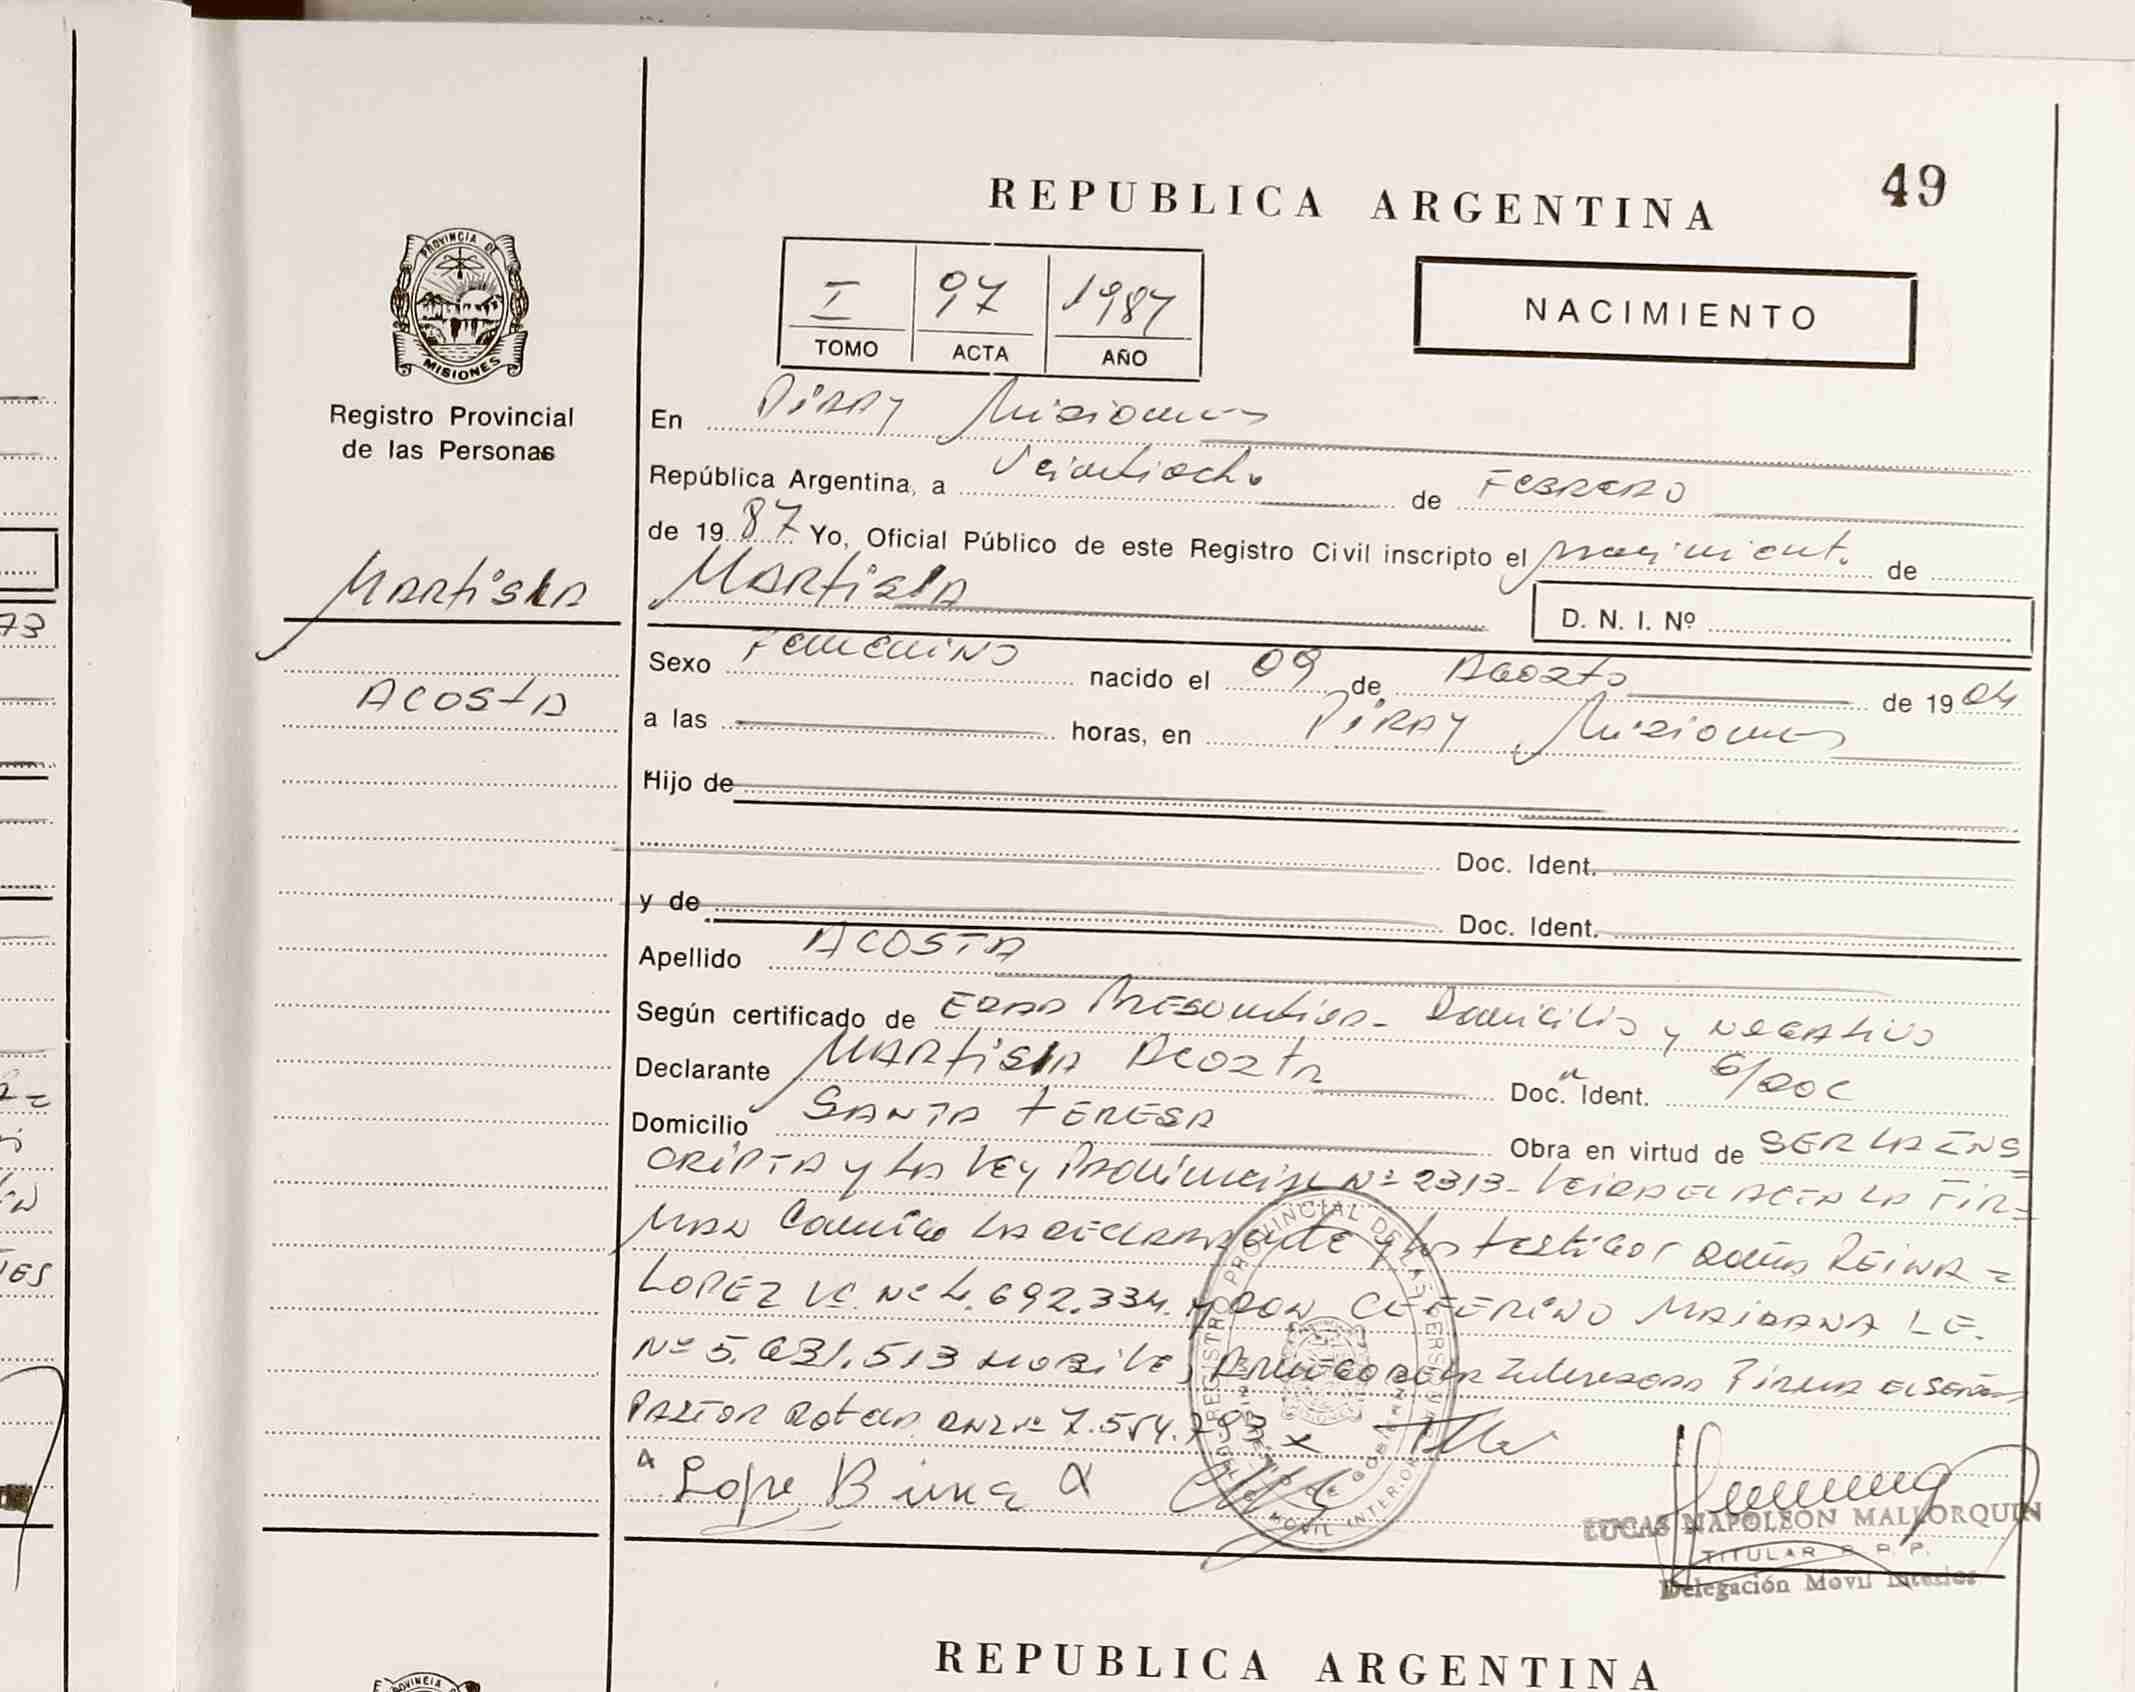 REPUBLICA ARGENTINA
49
PROVINCIA DE
MISIONES
Registro Provincial
de las Personas
I 97 1987
TOMO ACTA AÑO
NACIMIENTO
En Piray Misiones
República Argentina, a Veintiocho de FEBRERO
de 19 87 Yo, Oficial Público de este Registro Civil inscripto el nacimiento de
MARTISLA
D. N. I. Nº
MARTISLA
ACOSTA
Sexo Femenino nacido el 09 de Agosto de 19 04
a las horas, en PIRAY Misiones
Hijo de
Doc. Ident.
y de Doc. Ident.
Apellido ACOSTA
Según certificado de EDAD Presuntiva- Domicilio y NEGATIVO
Declarante MARTISLA Acosta Doc. Ident.
Domicilio SANTA TERESA Obra en virtud de SER LA INS
CRIPTA y LA LEY Provincial Nº 2313- LEIDA EL ACTA LA FIR=
MAN Conmigo LA DECLARANTE y los testigos doña REINA =
LOPEZ Nº 4.692.334. y DON CEFERINO MAIDANA L.E.
Nº 5.631.513 Firma EL SEÑOR
PASTOR 7.554.793 x
LUCAS NAPOLEON MALLORQUIN
TITULAR R. P. P.
Delegación Movil Interior
REPUBLICA ARGENTINA